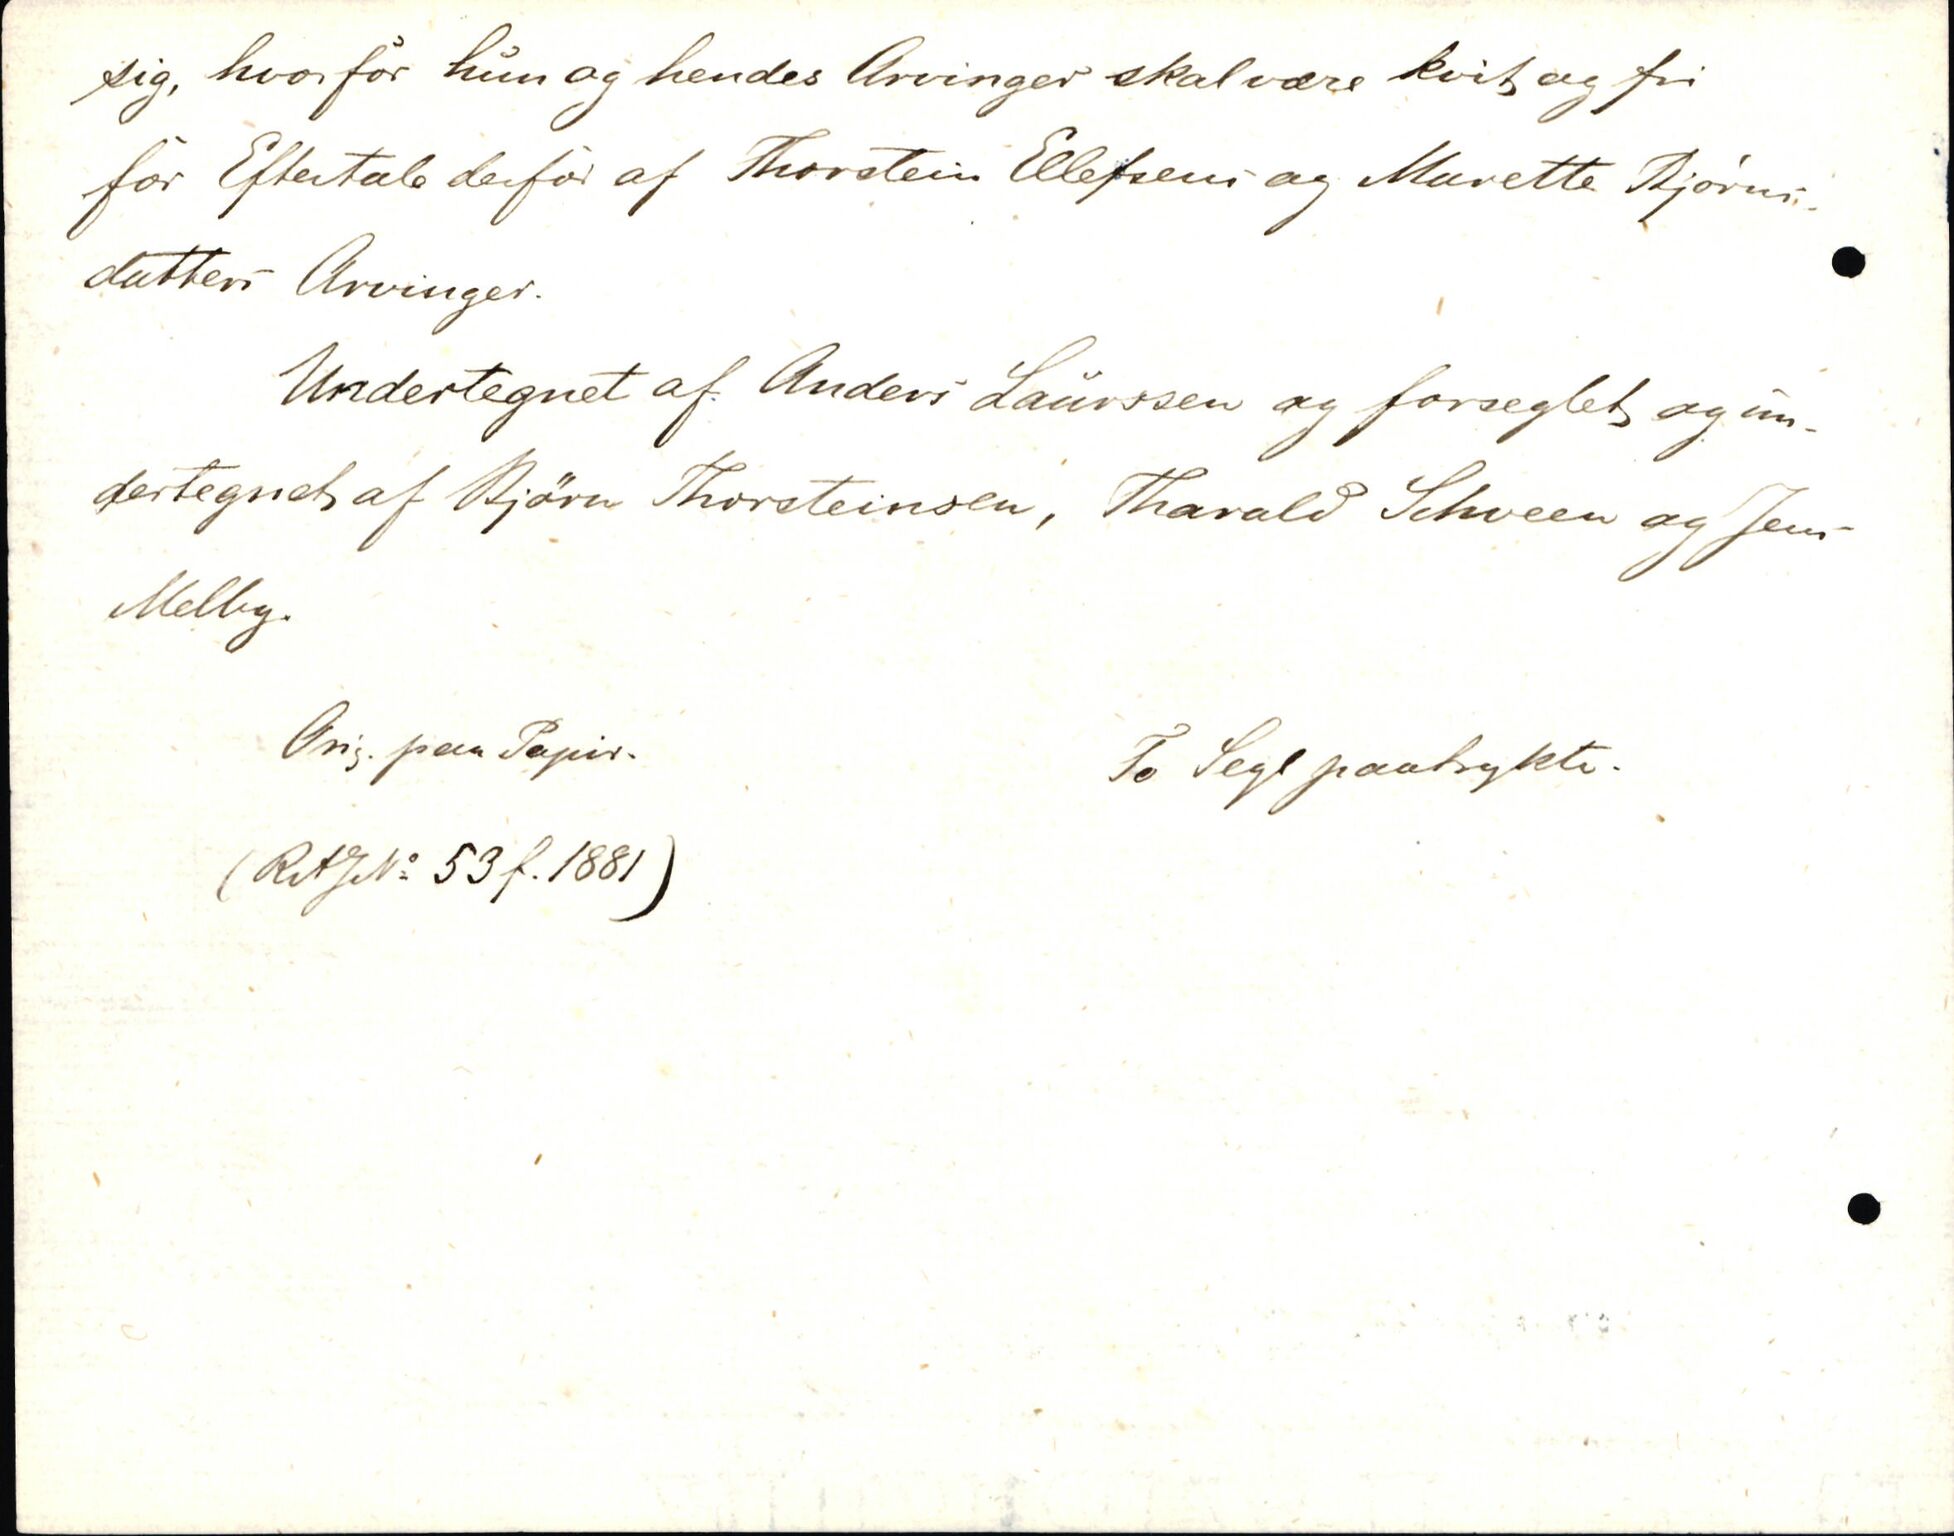 sig, hvorför hun og hendes Arvinger skal være kvit og fri
för Eftertale derför af Thorstein Ellefsens og Marette Björns-
datters Arvinger.
Undertegnet af Anders Laurssen og forseglet og un-
dertegnet af Björn Thorsteinsen, Tharald Schveen og Jens
Melby.
Orig. paa Papir.
To Segl paatrykte.
(RA J No 53 f. 1881)